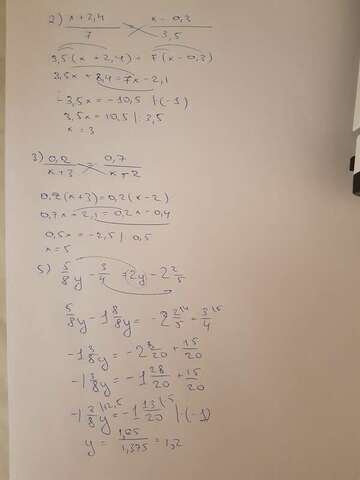 2) x+2,4 / 7 = x-0,3 / 3,5
3,5(x+2,4) = 7(x-0,3)
3,5x + 8,4 = 7x - 2,1
-3,5x = -10,5 |·(-1)
3,5x = 10,5 |: 3,5
x = 3
3) 0,2 / x+3 = 0,7 / x-2
0,7(x+3)=0,2(x-2)
0,7x + 2,1 = 0,2x - 0,4
0,5x = -2,5 | 0,5
x = 5
5) 5/8 y - 3/4 = 2y - 2 2/5
5/8 y - 1 8/8 y = -2 2/5 + 3/4
-1 3/8 y = -2 8/20 + 15/20
-1 3/8 y = -1 28/20 + 15/20
-1 3/8 y = -1 13/20 |·(-1)
y = 1,65 / 1,375 = 1,2